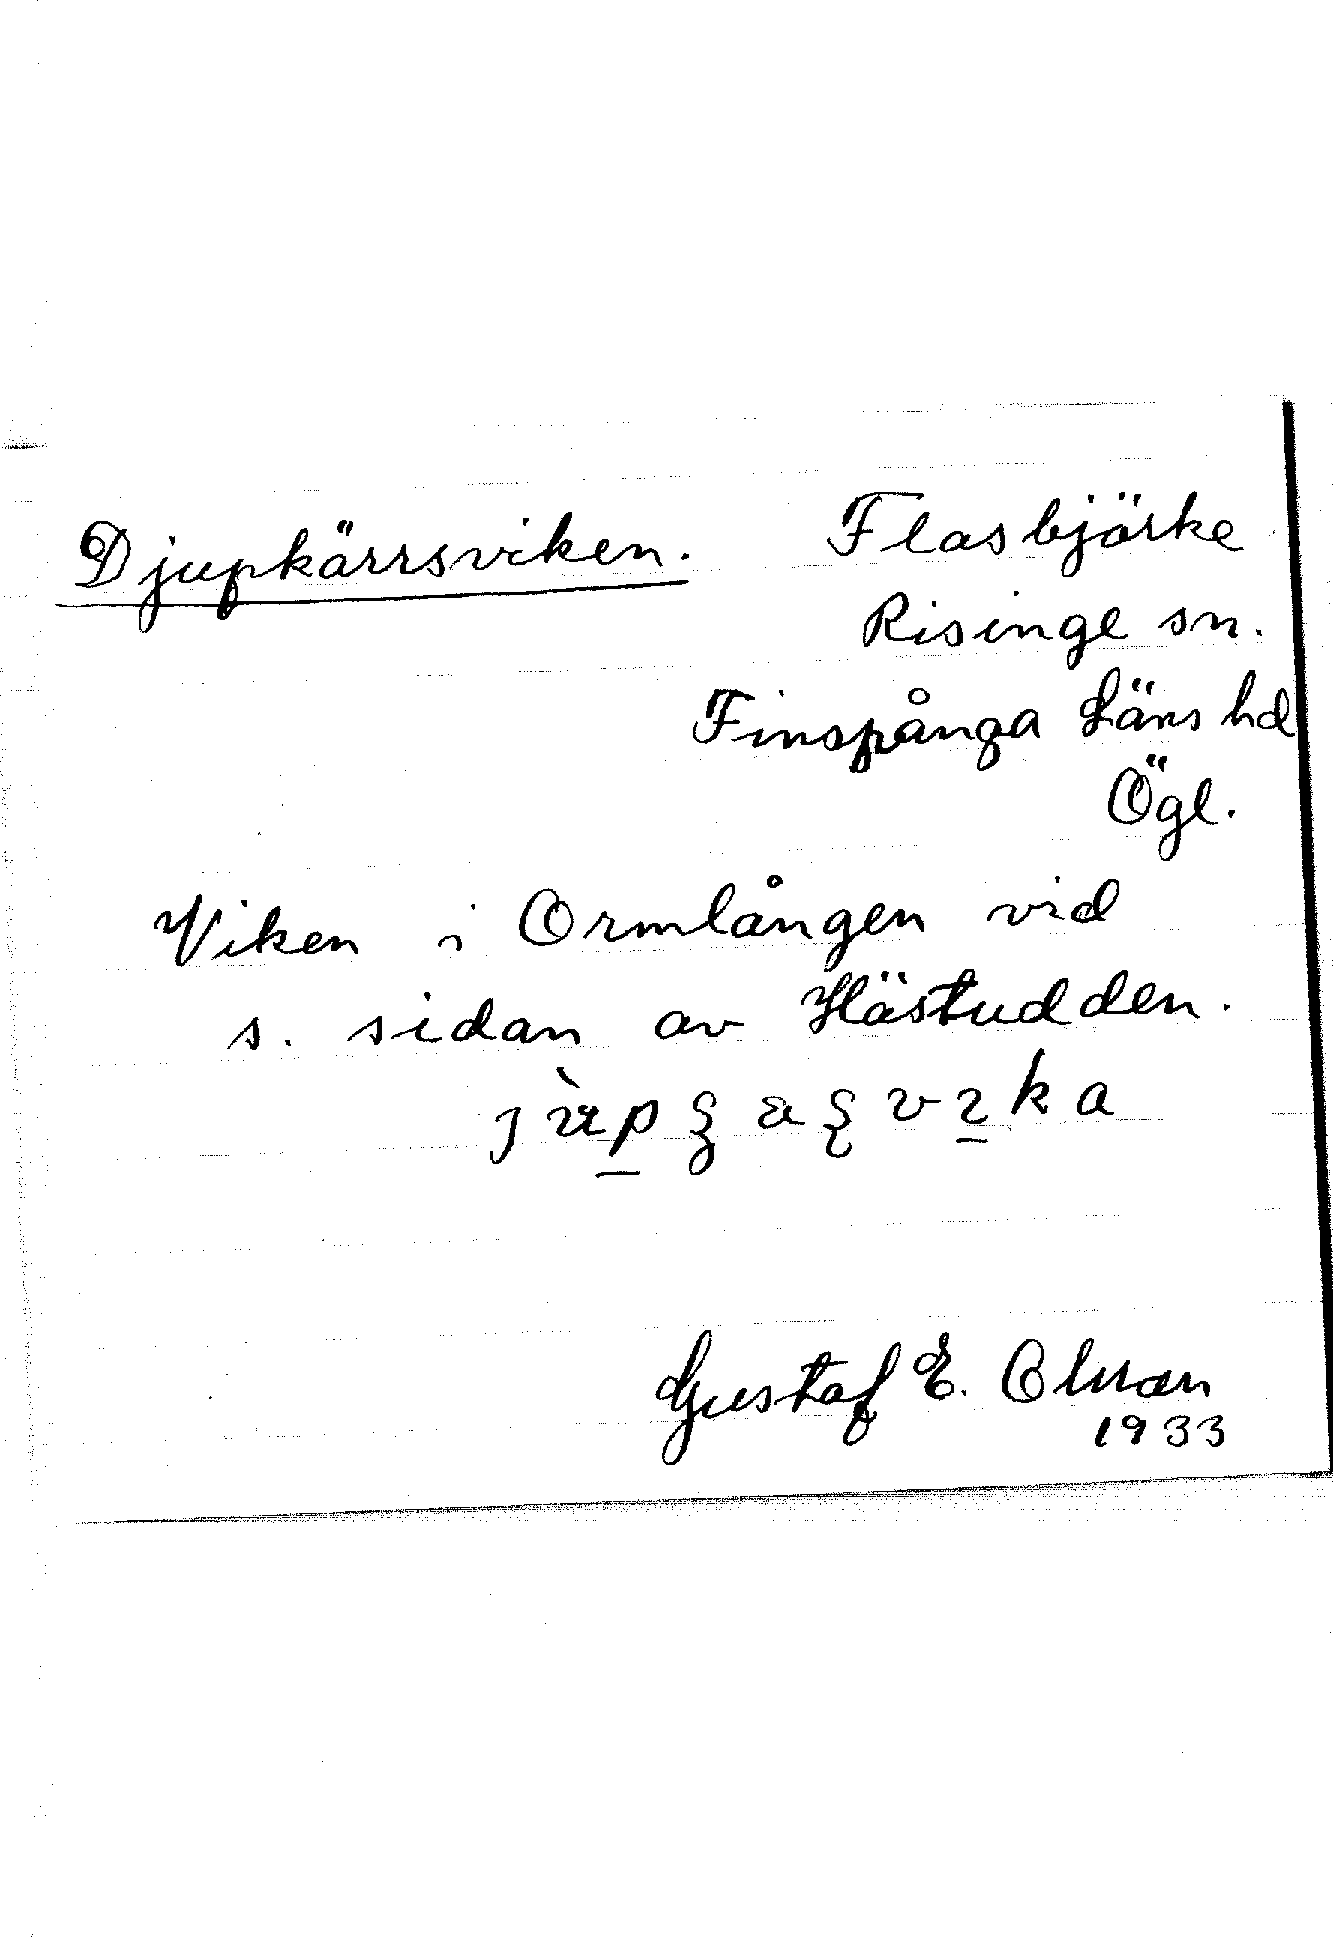 Djupkärrsviken. Flasbjörke
Risinge sn.
Finspånga Läns hd
Ögl.
Viken i Ormlången vid
s. sidan av Hästudden.
Gustaf E. Olsson
1933